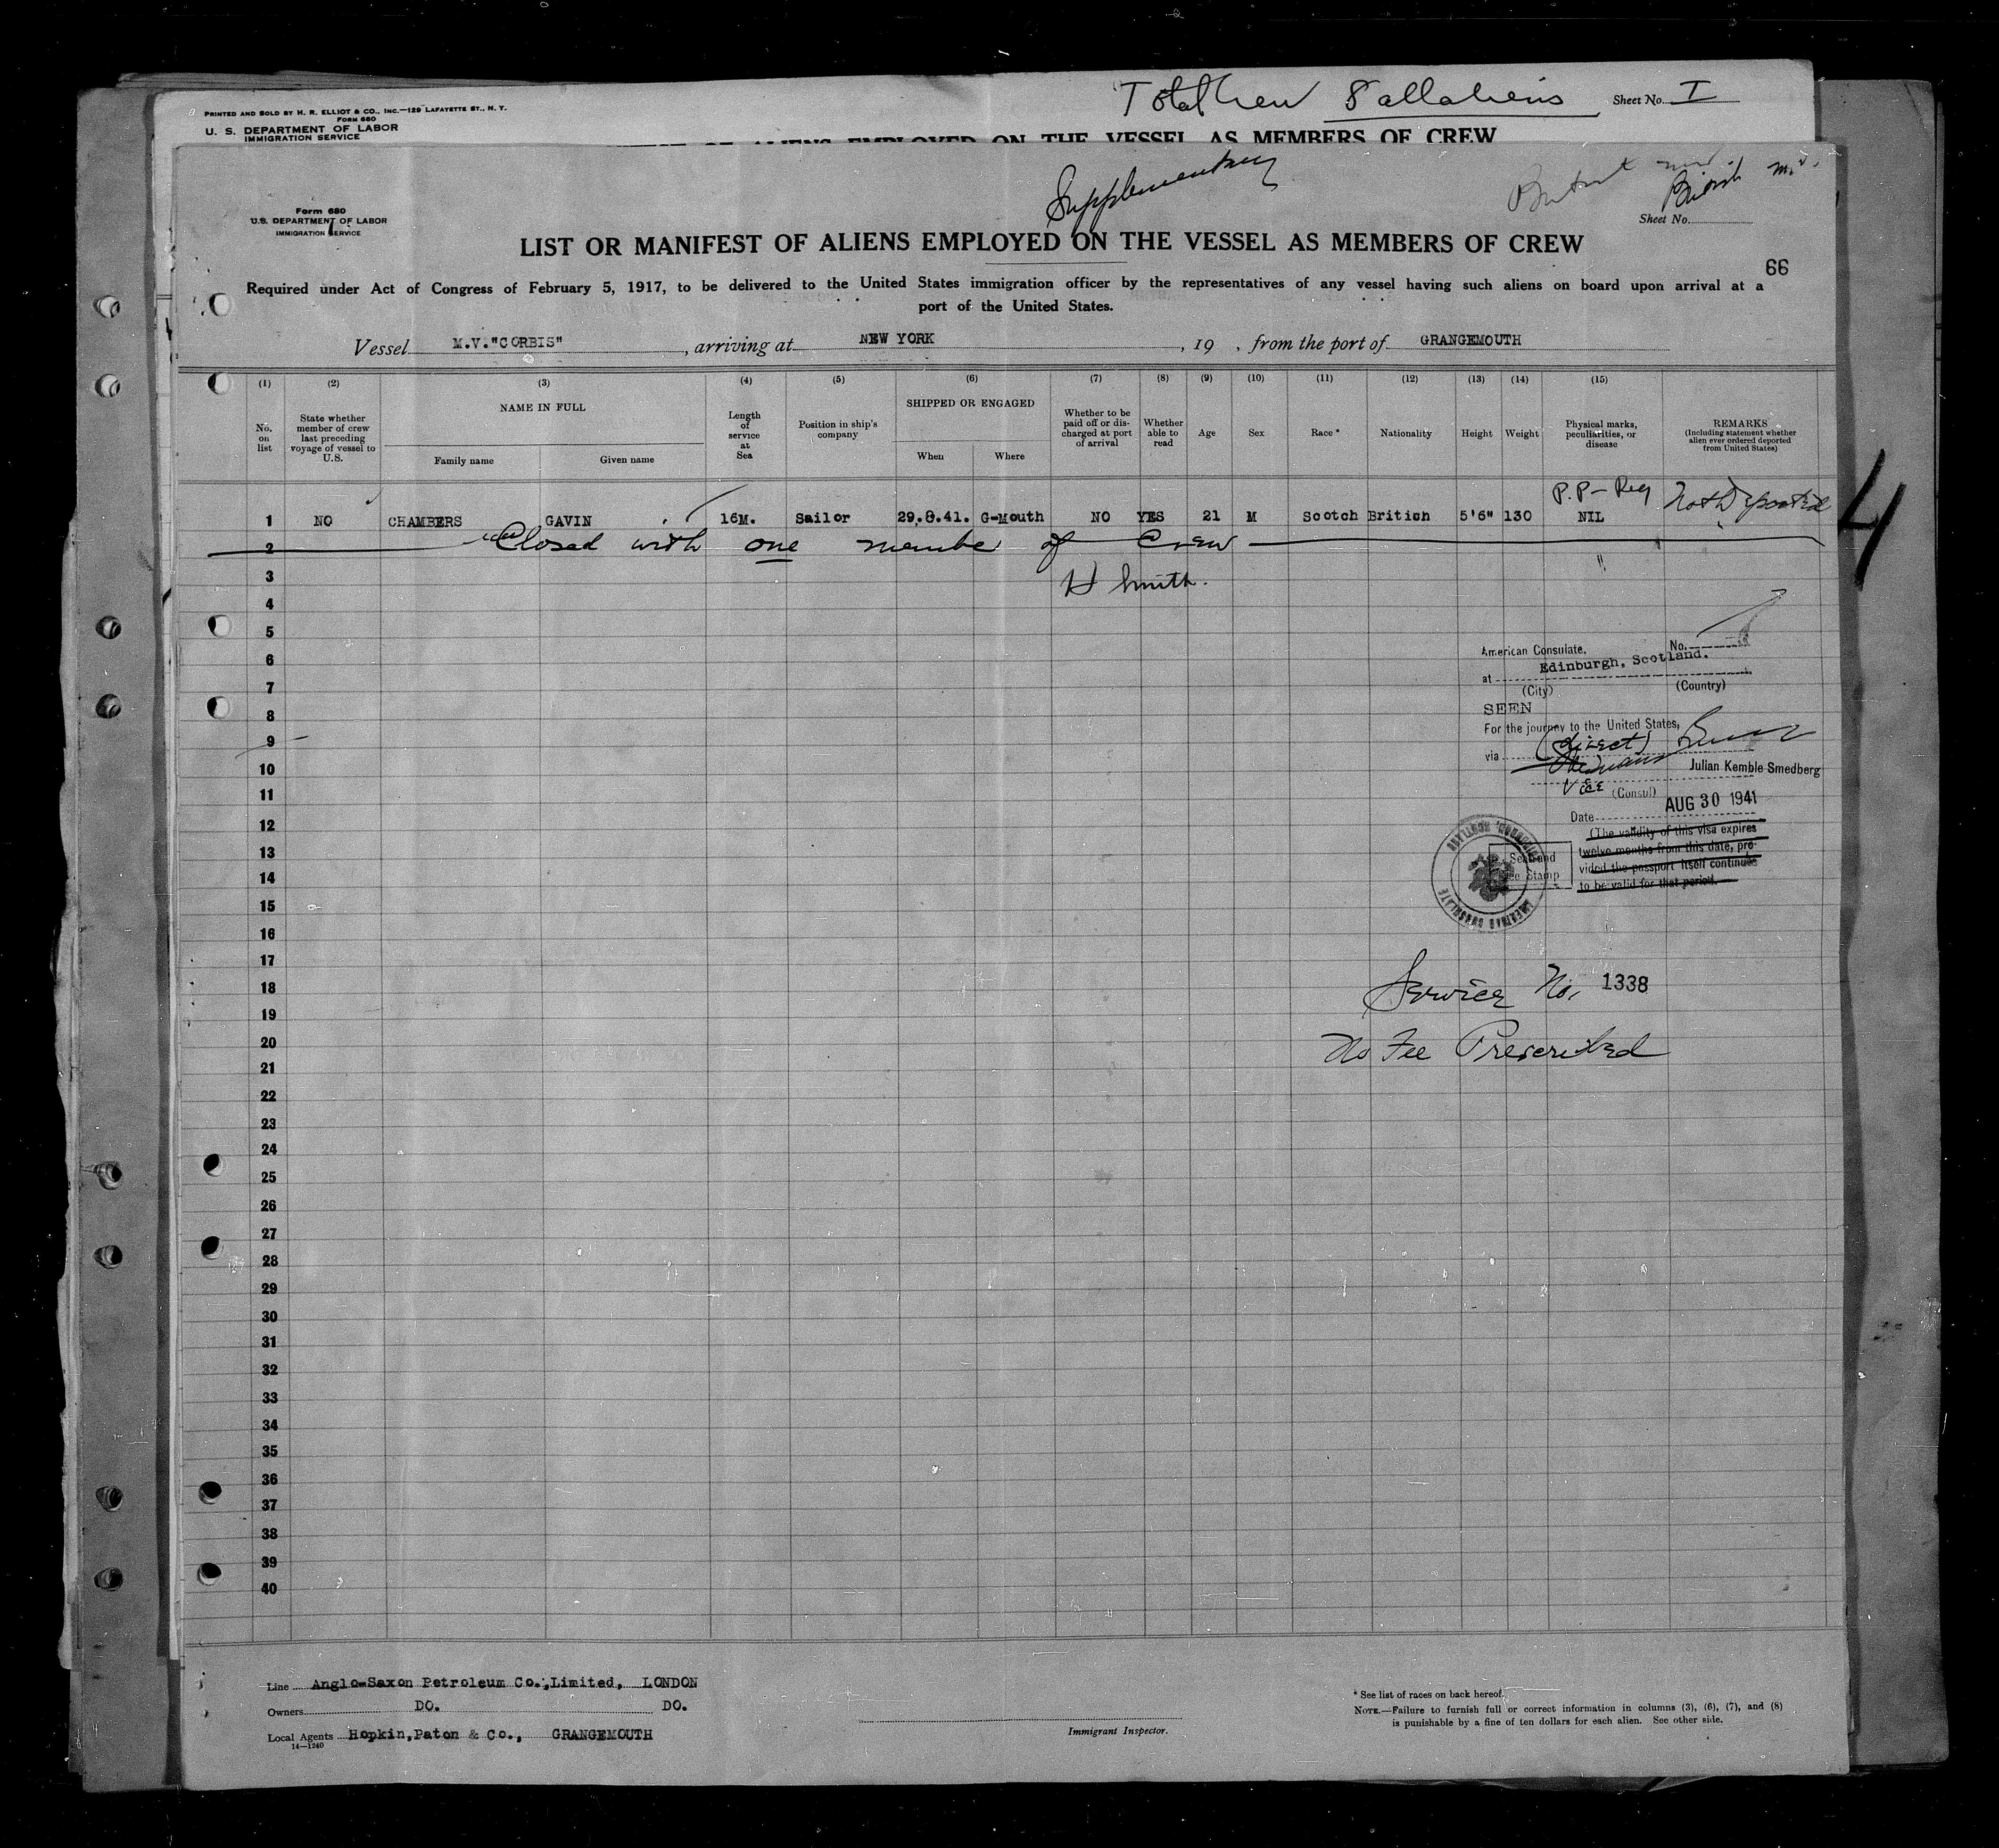 PRINTED AND SOLD BY H. R. ELLIOT & CO., INC.—129 LAFAYETTE ST., N. Y.
FORM 680
U. S. DEPARTMENT OF LABOR
IMMIGRATION SERVICE
Total Crew 8 all aliens
Sheet No. I
ALIENS EMPLOYED ON THE VESSEL AS MEMBERS OF CREW
Supplementary
British
British M.V.
Form 680
U.S. DEPARTMENT OF LABOR
IMMIGRATION SERVICE
Sheet No.
LIST OR MANIFEST OF ALIENS EMPLOYED ON THE VESSEL AS MEMBERS OF CREW
66
Required under Act of Congress of February 5, 1917, to be delivered to the United States immigration officer by the representatives of any vessel having such aliens on board upon arrival at a
port of the United States.
Vessel M.V."CORBIS", arriving at NEW YORK, 19 , from the port of GRANGEMOUTH
(1) (2) (3) (4) (5) (6) (7) (8) (9) (10) (11) (12) (13) (14) (15)
No. on list
State whether member of crew last preceding voyage of vessel to U.S.
NAME IN FULL
Family name Given name
Length of service at Sea
Position in ship's company
SHIPPED OR ENGAGED
When Where
Whether to be paid off or discharged at port of arrival
Whether able to read
Age
Sex
Race *
Nationality
Height
Weight
Physical marks, peculiarities, or disease
REMARKS
(Including statement whether alien ever ordered deported from United States)
P.P- Reg
1 NO CHAMBERS GAVIN 16M. Sailor 29.8.41. G-Mouth NO YES 21 M Scotch British 5'6" 130 NIL Not Deported
4
2 Closed with one membe of Crew
3 H Smith.
4
5
6
7
8
9
10
11
12
13
14
15
16
17
18
19
20
21
22
23
24
25
26
27
28
29
30
31
32
33
34
35
36
37
38
39
40
American Consulate. No.
at Edinburgh, Scotland.
(City) (Country)
SEEN
For the journey to the United States,
via (direct)
Julian Kemble Smedberg
Vice (Consul)
Date AUG 30 1941
(The validity of this visa expires
twelve months from this date, pro-
vided the passport itself continues
to be valid for that period.
Seal and
Fee Stamp
AMERICAN CONSULATE
EDINBURGH, SCOTLAND
Service No. 1338
No Fee Prescribed
Line Anglo-Saxon Petroleum Co.,Limited, LONDON
Owners DO. DO.
Local Agents Hopkin,Paton & Co., GRANGEMOUTH
14—1240
Immigrant Inspector.
* See list of races on back hereof.
NOTE.—Failure to furnish full or correct information in columns (3), (6), (7), and (8)
is punishable by a fine of ten dollars for each alien. See other side.